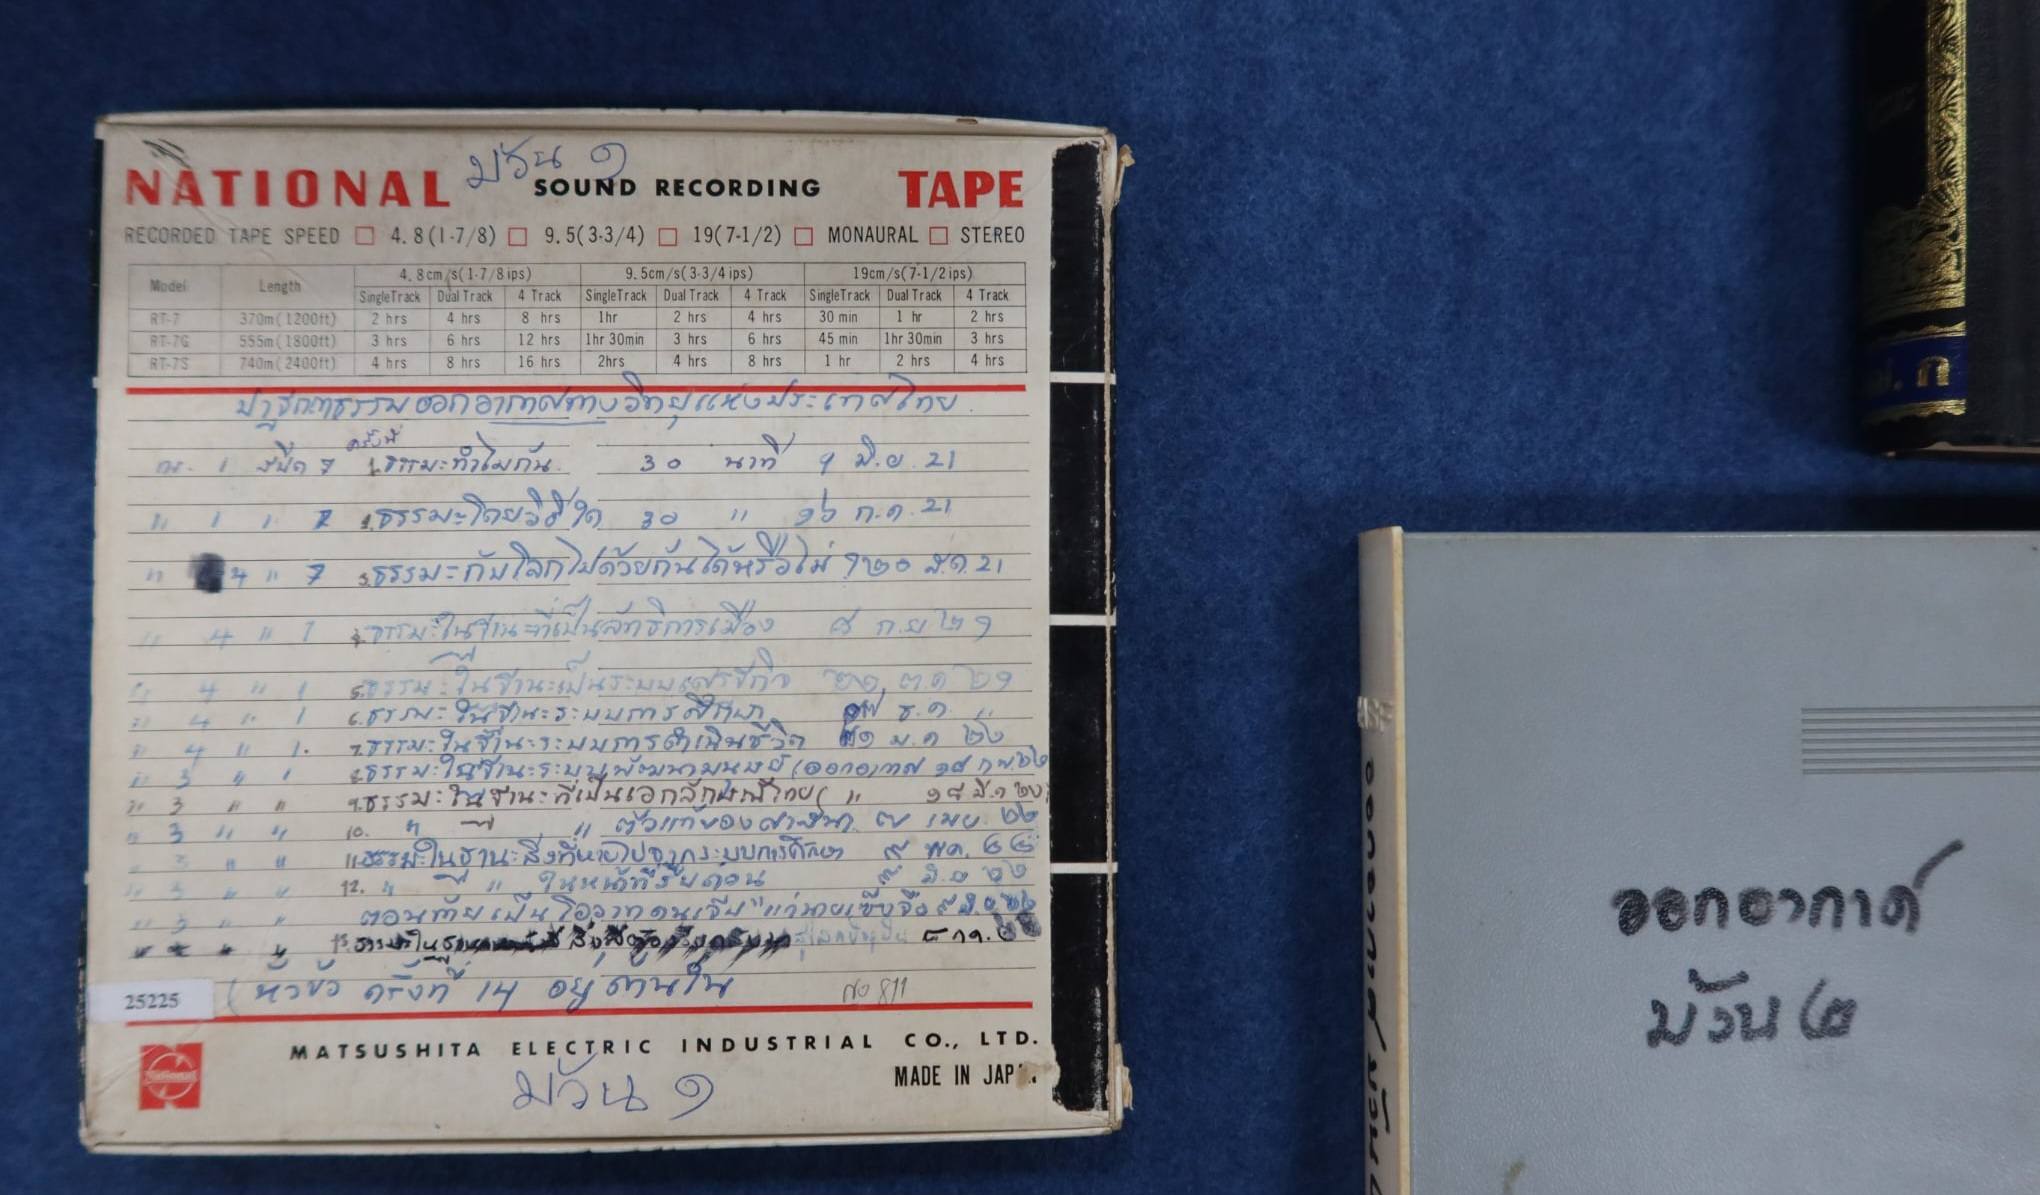 ม้วน ๑
NATIONAL SOUND RECORDING TAPE
RECORDED TAPE SPEED □ 4.8(1-7/8) □ 9.5(3-3/4) □ 19(7-1/2) □ MONAURAL □ STEREO
Model Length 4.8cm/s(1-7/8ips) 9.5cm/s(3-3/4ips) 19cm/s(7-1/2ips)
SingleTrack Dual Track 4 Track SingleTrack Dual Track 4 Track SingleTrack Dual Track 4 Track
RT-7 370m(1200ft) 2 hrs 4 hrs 8 hrs 1hr 2 hrs 4 hrs 30 min 1 hr 2 hrs
RT-7G 555m(1800ft) 3 hrs 6 hrs 12 hrs 1hr 30min 3 hrs 6 hrs 45 min 1hr 30min 3 hrs
RT-7S 740m(2400ft) 4 hrs 8 hrs 16 hrs 2hrs 4 hrs 8 hrs 1 hr 2 hrs 4 hrs
ปาฐกถาธรรมออกอากาศทางวิทยุแห่งประเทศไทย
ครั้งที่
1. ธรรมะทำไมกัน 30 นาที มิ.ย. 21
ธรรมะโดยวิธีใด 30 " ๑๖ ก.ค. 21
" 4 " 7 3. ธรรมะกับโลกไปด้วยกันได้หรือไม่ ? ๒๐ ส.ค. 21
" 4 " ธรรมะในฐานะที่เป็นลัทธิการเมือง ก.ย ๒๑
" 4 " 5. ธรรมะในฐานะเป็นระบบเศรษฐกิจ ต.ค ๒๑
" 4 " 6. ธรรมะในฐานะระบบการศึกษา ธ.ค. "
" 4 " 7. ธรรมะในฐานะระบบการดำเนินชีวิต ม.ค ๒๒
" 3 " ธรรมะในฐานะระบบพัฒนามนุษย์ (ออกอากาศ ๑๘ ก.พ. ๒๒
" 3 " " 9. ธรรมะในฐานะที่เป็นเอกลักษณ์ไทย ( " ๑๘ มี.ค ๒๒)
" 3 " " 10. " " ตัวแท้ของศาสนา ๗ เมย. ๒๒
" 3 " " 11. ธรรมะในฐานะสิ่งที่หายไปจากระบบการศึกษา ๙ พ.ค.
" 3 " " 12. " " ในหน้าที่รีบด่วน ๙ มิ.ย ๒๒
" 3 " " ตอนท้ายเป็นโอวาท
25225 (หัวข้อ ครั้งที่ 14 อยู่ด้านใน No 811
MATSUSHITA ELECTRIC INDUSTRIAL CO., LTD.
National
MADE IN JAP
ม้วน ๑
ออกอากาศ
ม้วน ๒